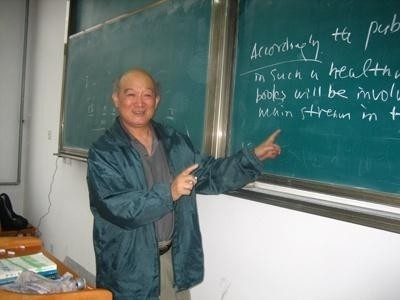 Accordingly, the pub
in such a health
books will be invol
main stream in t